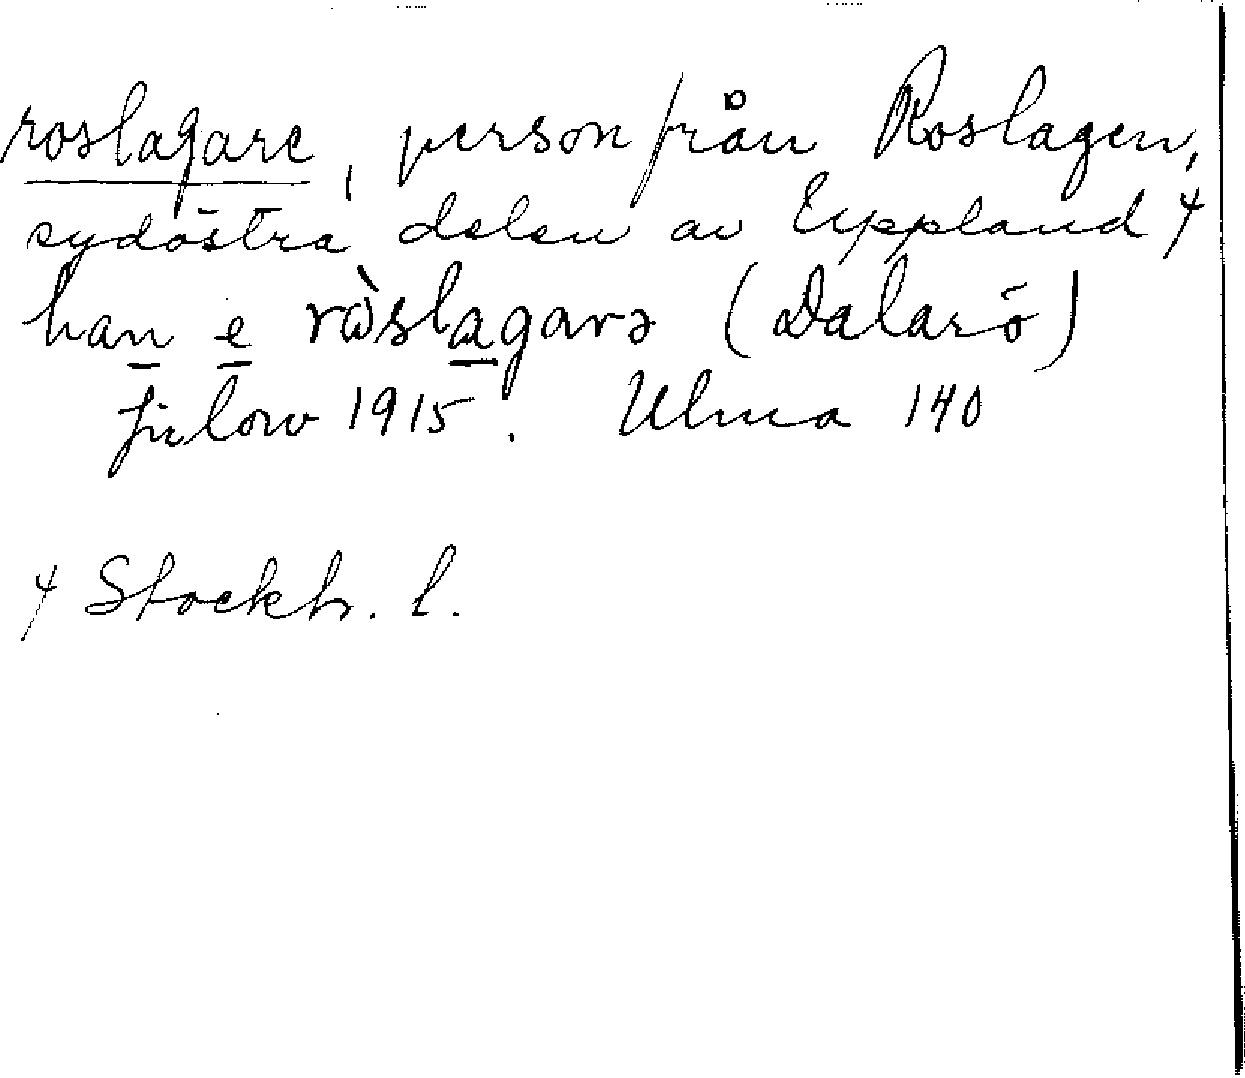 roslagare, person från Roslagen,
sydöstra delen av Uppland +
han e ròslagarə (Dalarö)
1915. Ulma 140
+ Stockh. l.